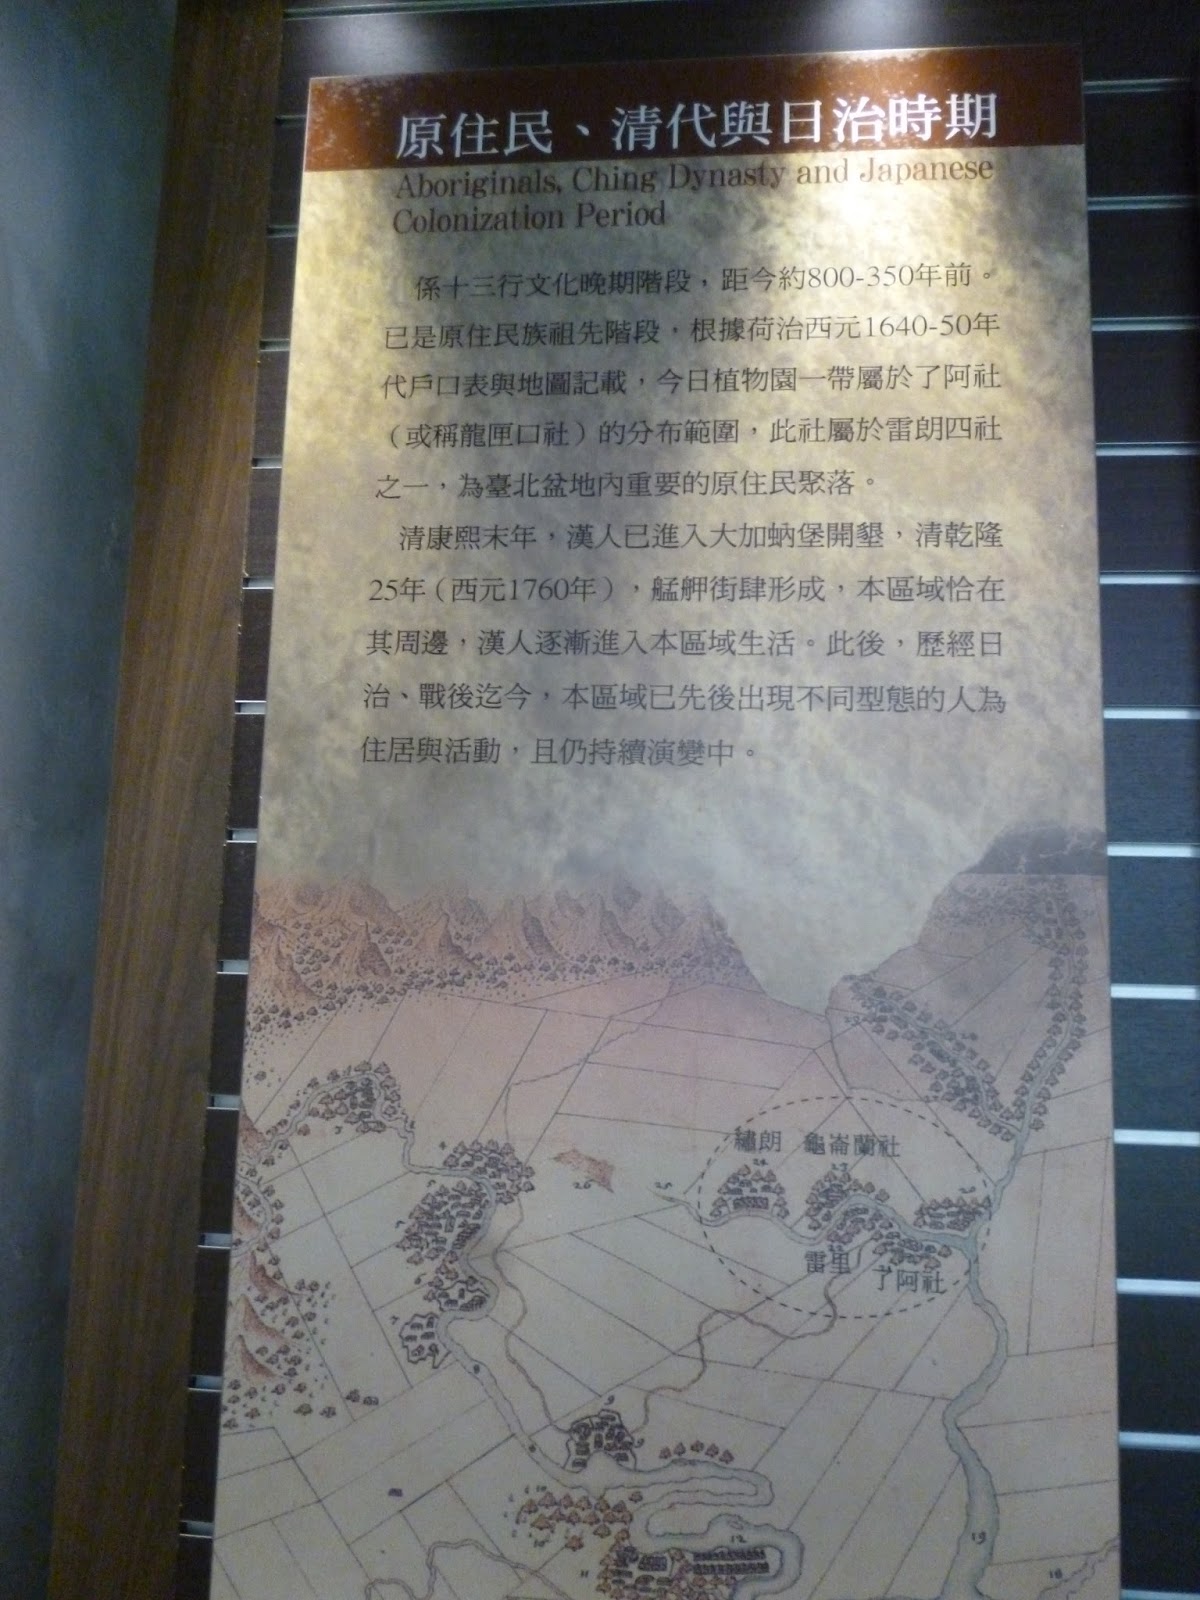 原住民、清代與日治時期
Aboriginals, Ching Dynasty and Japanese
Colonization Period
係十三行文化晚期階段，距今約800-350年前。
已是原住民族祖先階段，根據荷治西元1640-50年
代戶口表與地圖記載，今日植物園一帶屬於了阿社
（或稱龍匣口社）的分布範圍，此社屬於雷朗四社
之一，為臺北盆地內重要的原住民聚落。
清康熙末年，漢人已進入大加蚋堡開墾，清乾隆
25年（西元1760年），艋舺街肆形成，本區域恰在
其周邊，漢人逐漸進入本區域生活。此後，歷經日
治、戰後迄今，本區域已先後出現不同型態的人為
住居與活動，且仍持續演變中。
繡朗 龜崙蘭社
24 23
26 25
雷里
了阿社
9
12
19